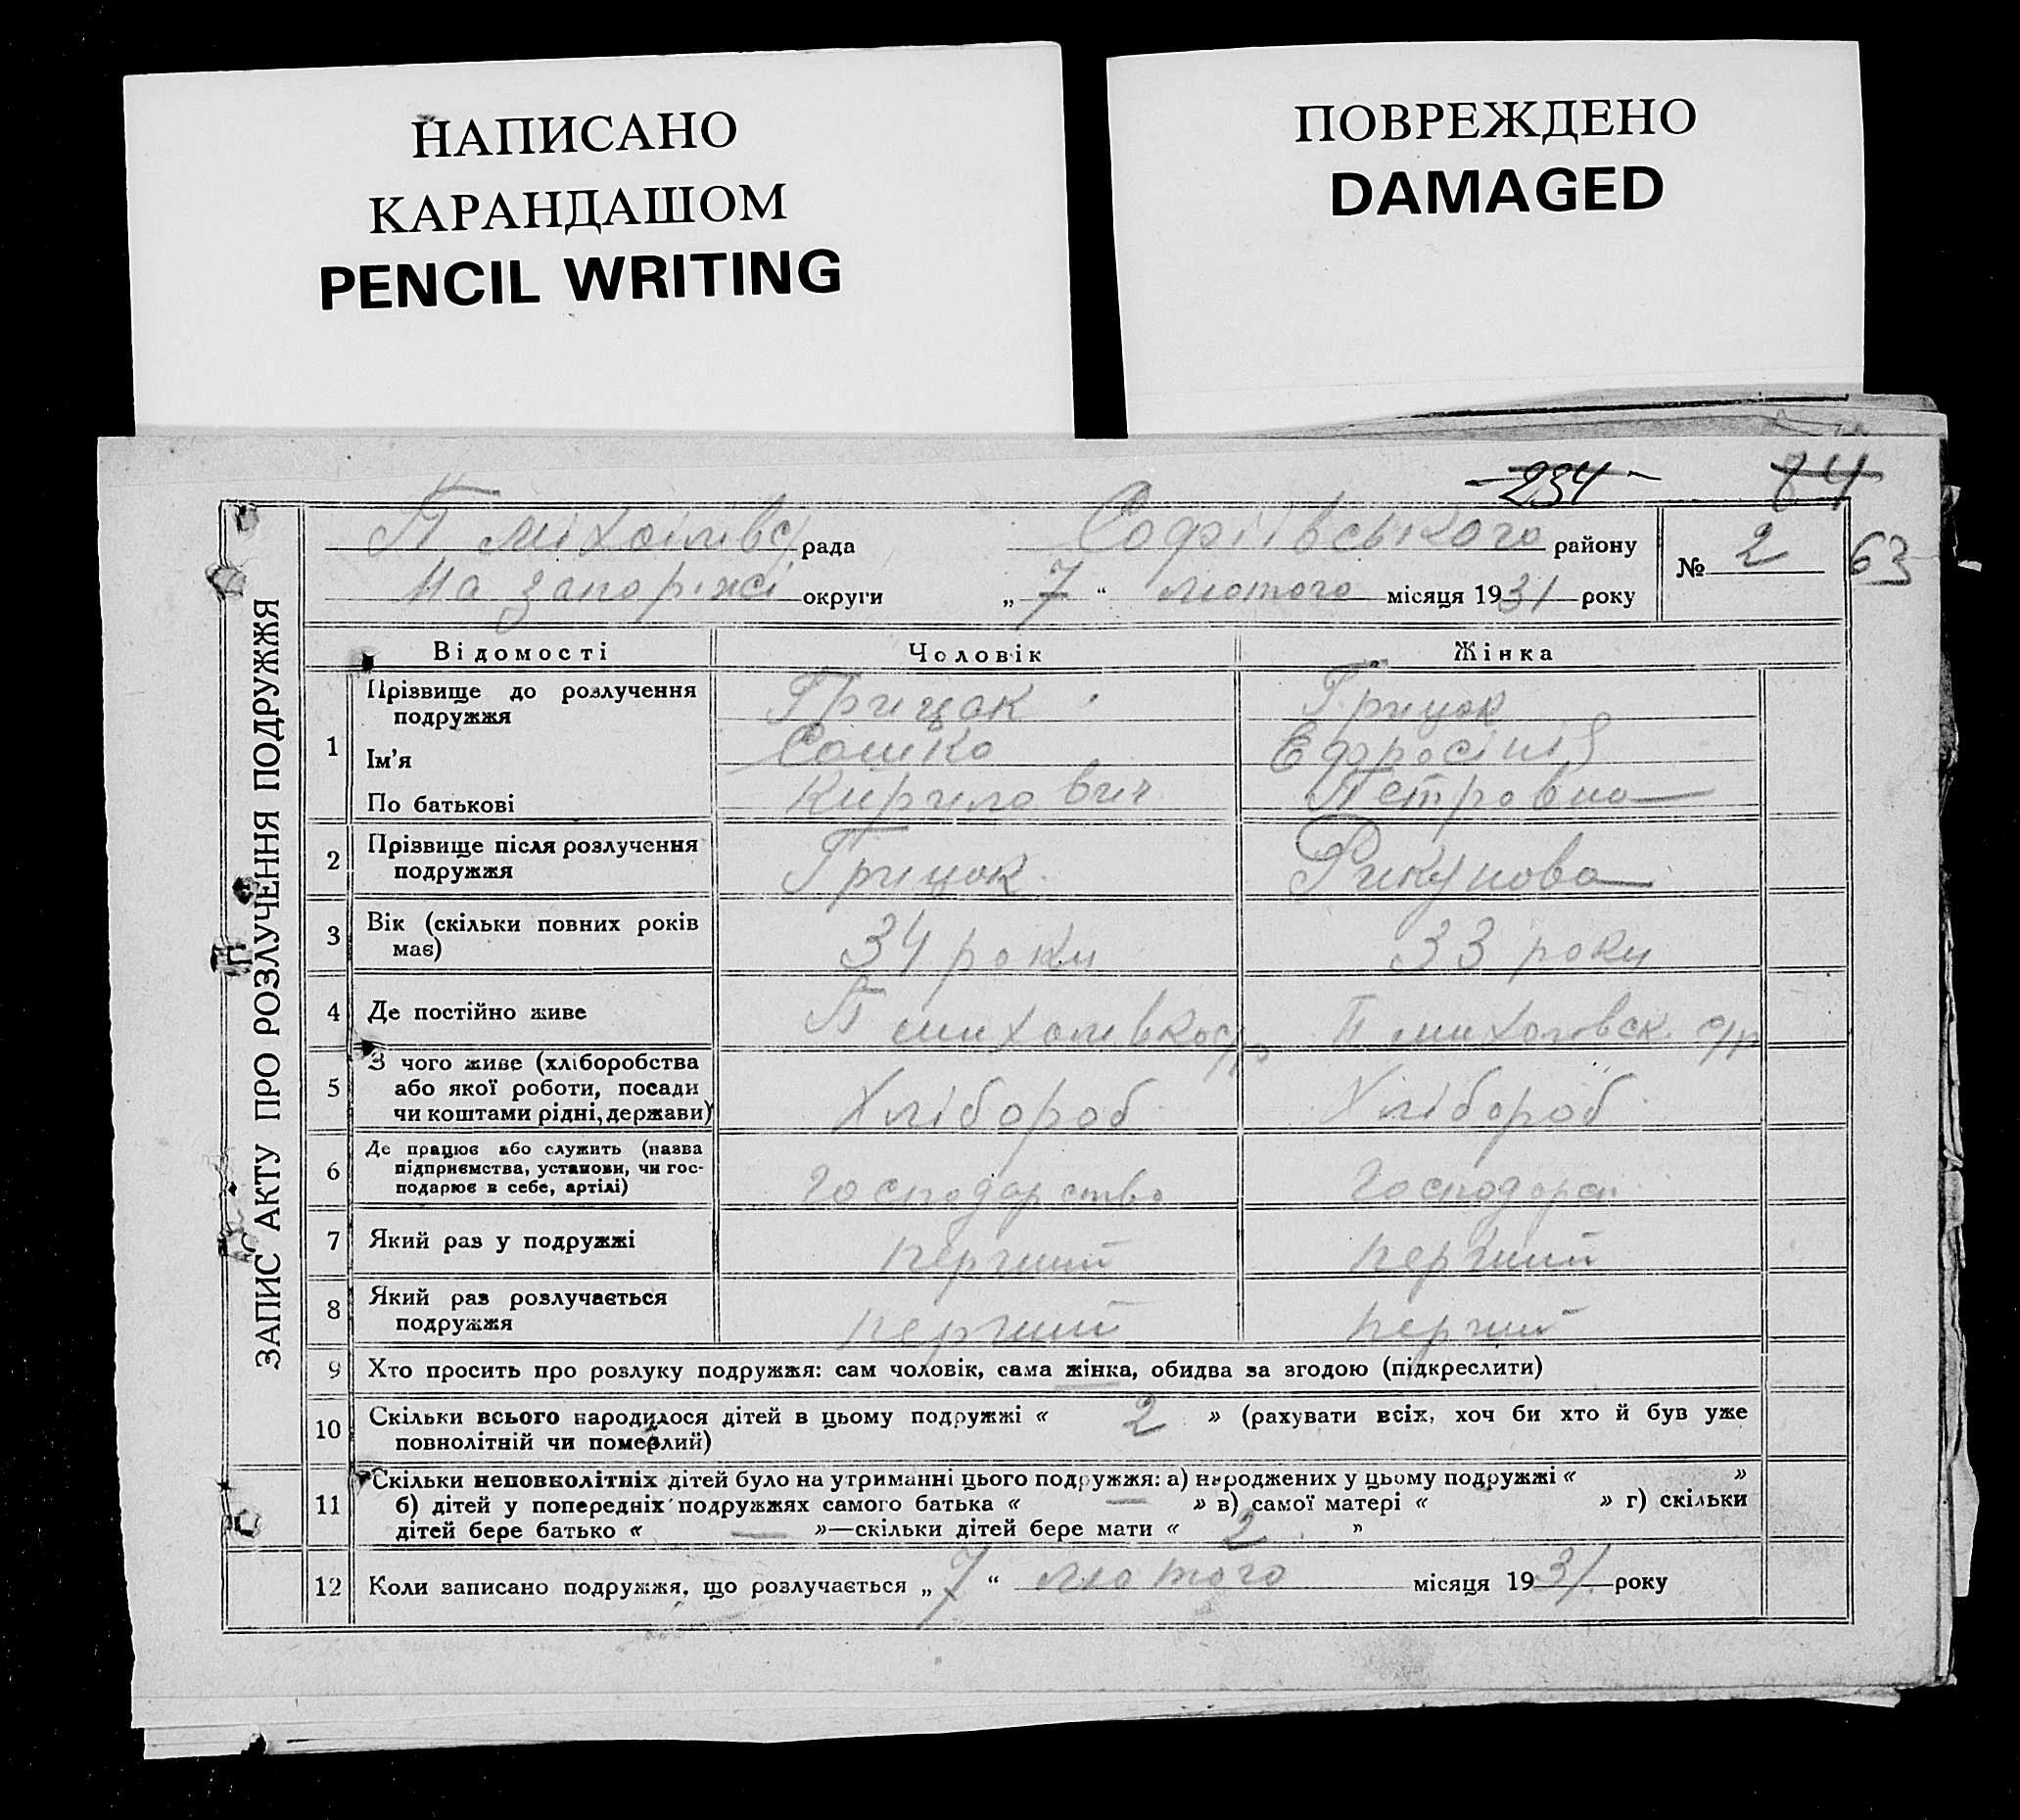 НАПИСАНО
КАРАНДАШОМ
PENCIL WRITING
ПОВРЕЖДЕНО
DAMAGED
234
84
63
ЗАПИС АКТУ ПРО РОЗЛУЧЕННЯ ПОДРУЖЖЯ
П Міхоілівс рада Софіівського району
На запоріжі округи „ 7 “ лютого місяця 1931 року
№ 2
Відомості Чоловік Жінка
1 Прізвище до розлучення подружжя Грицак Грицак
Ім'я Сашко Ефросінія
По батькові Кирилович Петровна
2 Прізвище після розлучення подружжя Грицак Рикунова
3 Вік (скільки повних років має) 34 роки 33 роки
4 Де постійно живе П П
5 З чого живе (хліборобства або якої роботи, посади чи коштами рідні, держави) Хлібороб Хлібороб
6 Де працює або служить (назва підприємства, установи, чи господарює в себе, артілі) Господарство
7 Який раз у подружжі перший перший
8 Який раз розлучається подружжя перший перший
9 Хто просить про розлуку подружжя: сам чоловік, сама жінка, обидва за згодою (підкреслити)
10 Скільки всього народилося дітей в цьому подружжі « 2 » (рахувати всіх, хоч би хто й був уже
повнолітній чи померлий)
11 Скільки неповнолітніх дітей було на утриманні цього подружжя: а) народжених у цьому подружжі « »
б) дітей у попередніх подружжях самого батька « — » в) самої матері « » г) скільки
дітей бере батько « — »—скільки дітей бере мати « 2 »
12 Коли записано подружжя, що розлучається „ 7 “ лютого місяця 1931 року